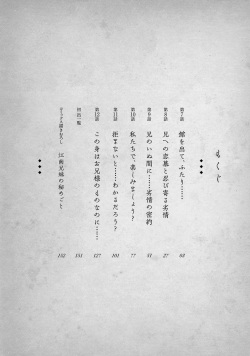 もくじ
第7話 館を出て、ふたり…… 03
第8話 兄への恋慕と忍び寄る劣情 27
第9話 兄のいぬ間に……劣情の密約 51
第10話 私たちで、楽しみましょう? 77
第11話 拒まないと……わかるだろう? 101
第12話 この身はお兄様のものなのに…… 127
151
江國兄妹の秘めごと 152